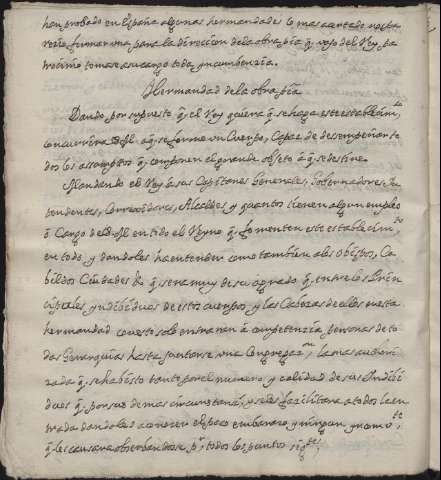 han probado en España algunas hermandades lo mas acertado
seria formar una para la direccion de la obra pia q.e vajo del Rey, pa
trocinio tomase a su cargo toda incumbenzia.
Hermandad de la obra pia
Dando por supuesto q.e el Rey quiera q.e se haga este establecim.to
concurrira S.M. a q.e se forme un Cuerpo, Capaz de desempeñar to
dos los assumptos q.e componen el grande objeto à q.e se destina.
Mandando el Rey à sus Capitanes Generales, Gobernadores, In
tendentes, Correxidores, Alcaldes y quantos tienen algun empleo
ò Cargo de S.M. en todo el Reyno q.e fomenten este establecim.to
en todo, y dandoles ha entender como tambien a los Obispos, Ca
bildos Ciudades &c. q.e sera muy de su agrado q.e entre los Prin
cipales yndibiduos de estos cuerpos, y las Cabezas de ellos en esta
hermandad con esto solo entraran à competenzia personas de to
das Gerarquias hasta juntarse una Congregaz.on la mas authori
zada q.e se ha bisto tanto por el numero y calidad de sus Yndibi
duos q.e por sus demas circunstanz.s y se les facilitara a todos la en
trada dandoles a conocer el poco embarazo y ningun gravam.to
q.e les causara observandose p.r todos los puntos sig.tes